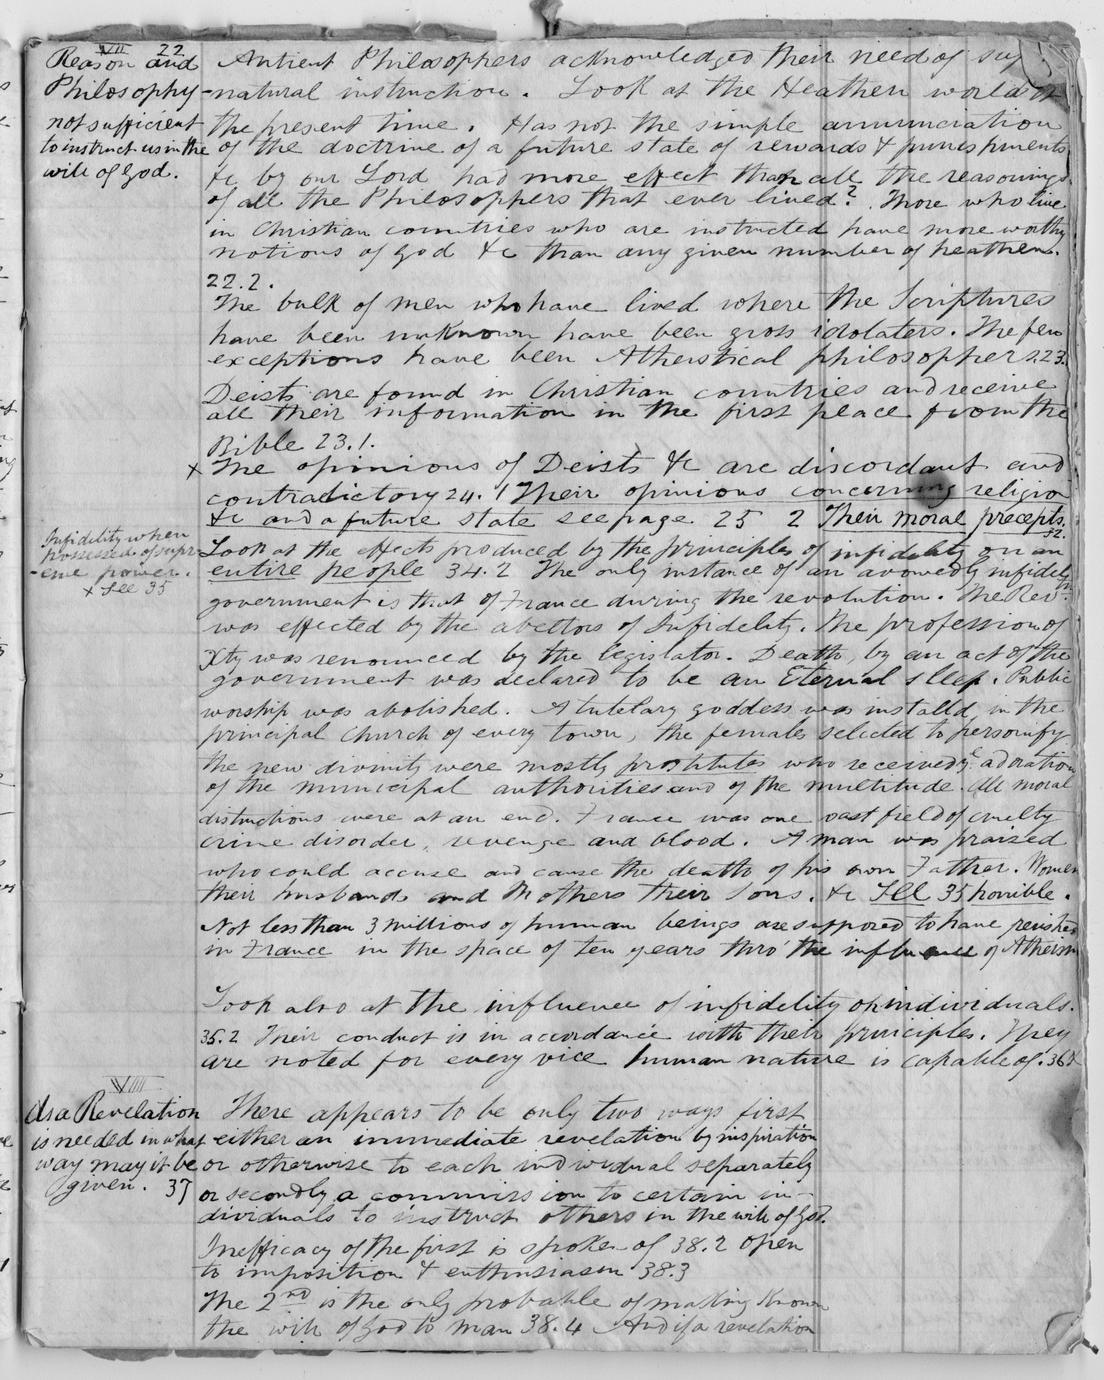 VII 22
Reason and
Philosophy
not sufficient
to instruct us in the
will of God.
Antient Philosophers acknowledged their need of sup
-natural instruction. Look at the Heathen world at
the present time. Has not the simple annunciation
of the doctrine of a future state of rewards & punishments
&c by our Lord had more effect than all the reasonings
of all the Philosophers that ever lived? Those who live
in Christian countries who are instructed have more worthy
notions of God &c than any given number of heathen.
22.2.
The bulk of men who have lived where the Scriptures
have been unknown have been gross idolaters. The few
exceptions have been Atheistical philosophers. 23.
Deists are found in Christian countries and receive
all their information in the first place from the
Bible 23.1.
x The opinions of Deists &c are discordant and
contradictory 24.1 Their opinions concerning religion
&c and a future state see page 25 2 Their moral precepts.
32.
Infidelity when
possessed of supr-
-eme power.
x See 35
Look at the effects produced by the principles of infidelity on an
entire people 34.2 The only instance of an avowedly infidel
government is that of France during the revolution. The Rev
was effected by the abettors of Infidelity. The profession of
Xty was renounced by the legislator. Death, by an act of the
government was declared to be an Eternal sleep. Public
worship was abolished. A tutelary goddess was installd in the
principal Church of every town, the females selected to personify
the new divinity were mostly prostitutes who received ye adoration
of the municipal authorities and of the multitude. All moral
distinctions were at an end. France was one vast field of cruelty
crime disorder, revenge and blood. A man was praised
who could accuse and cause the death of his own Father. Women
their husbands and Mothers their Sons. &c See 35 horrible.
Not less than 3 millions of human beings are supposed to have perished
in France in the space of ten years thro' the influence of Atheism
Look also at the influence of infidelity on individuals.
35.2 Their conduct is in accordance with their principles. They
are noted for every vice human nature is capable of. 36.2
VIII
As a Revelation
is needed in what
way may it be
given. 37
There appears to be only two ways first
either an immediate revelation by inspiration
or otherwise to each individual separately
or secondly a commission to certain in-
dividuals to instruct others in the will of God.
Inefficacy of the first is spoken of 38.2 open
to imposition & enthusiasm 38.3
The 2nd is the only probable of making known
the will of God to man 38.4 And if a revelation